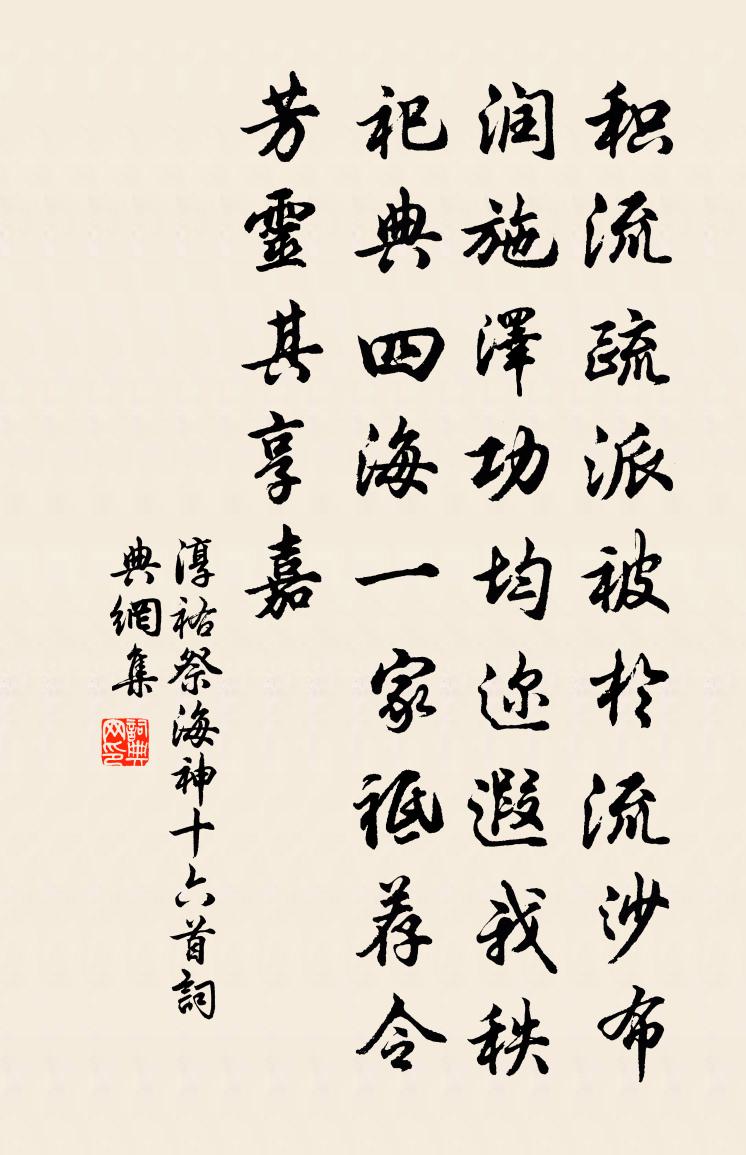 积流疏派被於流沙布
润施澤功均迩遐我秩
祀典四海一家祗荐令
芳靈其享嘉
淳祐祭海神十六首詞
典網集
詞典
网印